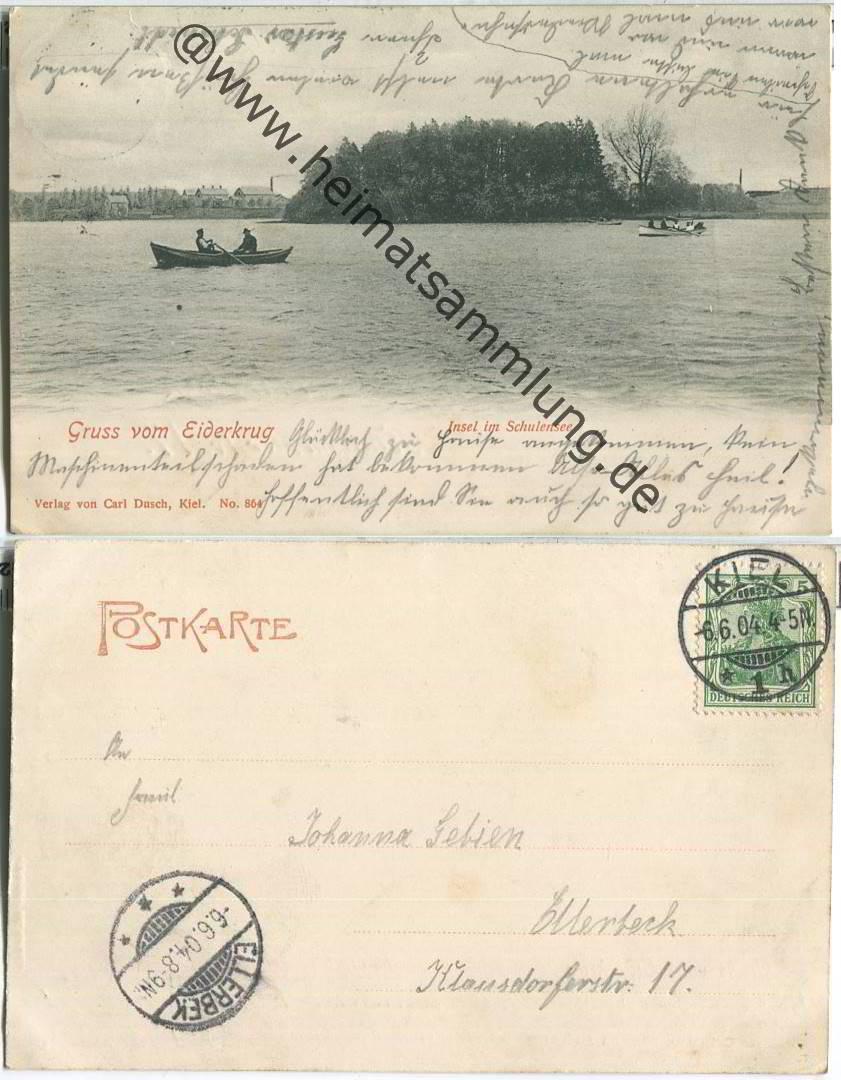 @www.heimatsammlung.de
Ihnen Gustav
erhaltene Karte nebst vielen Grüßen sendet
Gruss vom Eiderkrug
Insel im Schulensee
Glücklich zu Hause angekommen, kein
Maschinenteilschaden hat bekommen Also Alles Heil!
Verlag von Carl Dusch, Kiel. No. 864
Hoffentlich sind Sie auch so gut zu Hause
POSTKARTE
KIEL
-6.6.04.4-5N.
* 1 h
5
DEUTSCHES REICH
An
Fräul.
Johanna Gebien
Ellerbeck
Klausdorferstr. 17.
ELLERBEK
-6.6.04.8-9N.